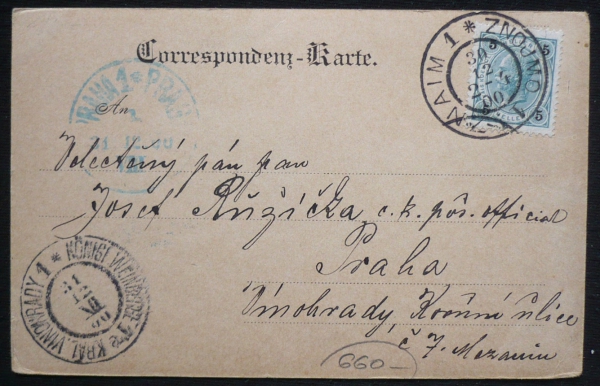 Correspondenz-Karte.
ZNAIM 1 * ZNOJMO 1
30
12
00
5 5
5
HELLER
PRAHA 1 * PRAG 1
31 12 00
An
Velectěný pán pan
Josef Růžička c.k. pôs. official
Praha
Vinohrady, Korūní ulice
č 7. Mezanin
KÖNIGL. WEINBERGE 1 * KRÁL. VINOHRADY 1 *
31
12
XII
00
660-